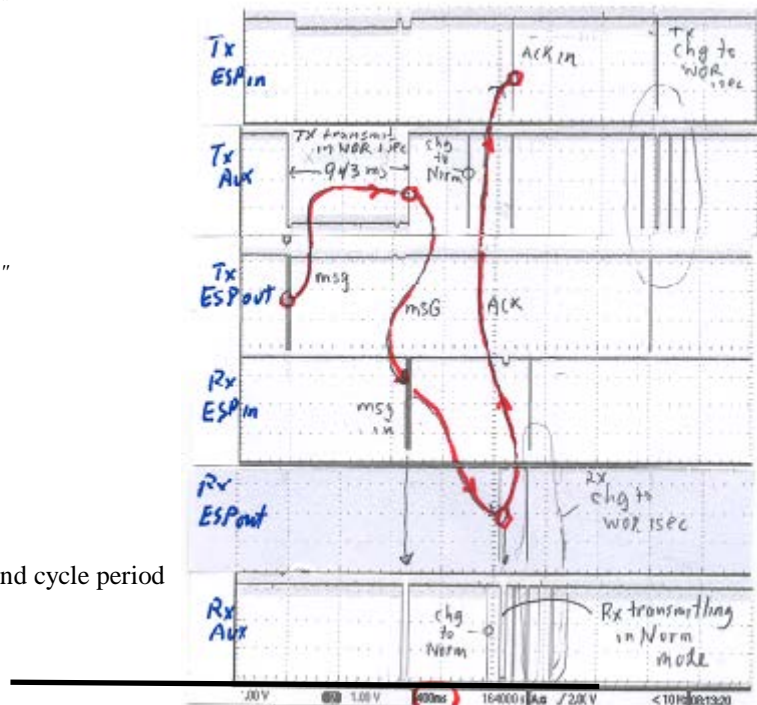 Tx
ESP in
ACK in
Tx
chg to
WOR
1sec
Tx
Aux
TX transmit
in WOR 1sec
943 ms
chg
to
Norm
"
Tx
ESP out
msg
msG
ACK
Rx
ESP in
msg
in
Rx
ESP out
RX
chg to
WOR 1sec
nd cycle period
Rx
Aux
chg
to
Norm
Rx transmitting
in Norm
mode
.00 V
1.00 V
400ms
2.00 V
<10 Hz 08:19:20